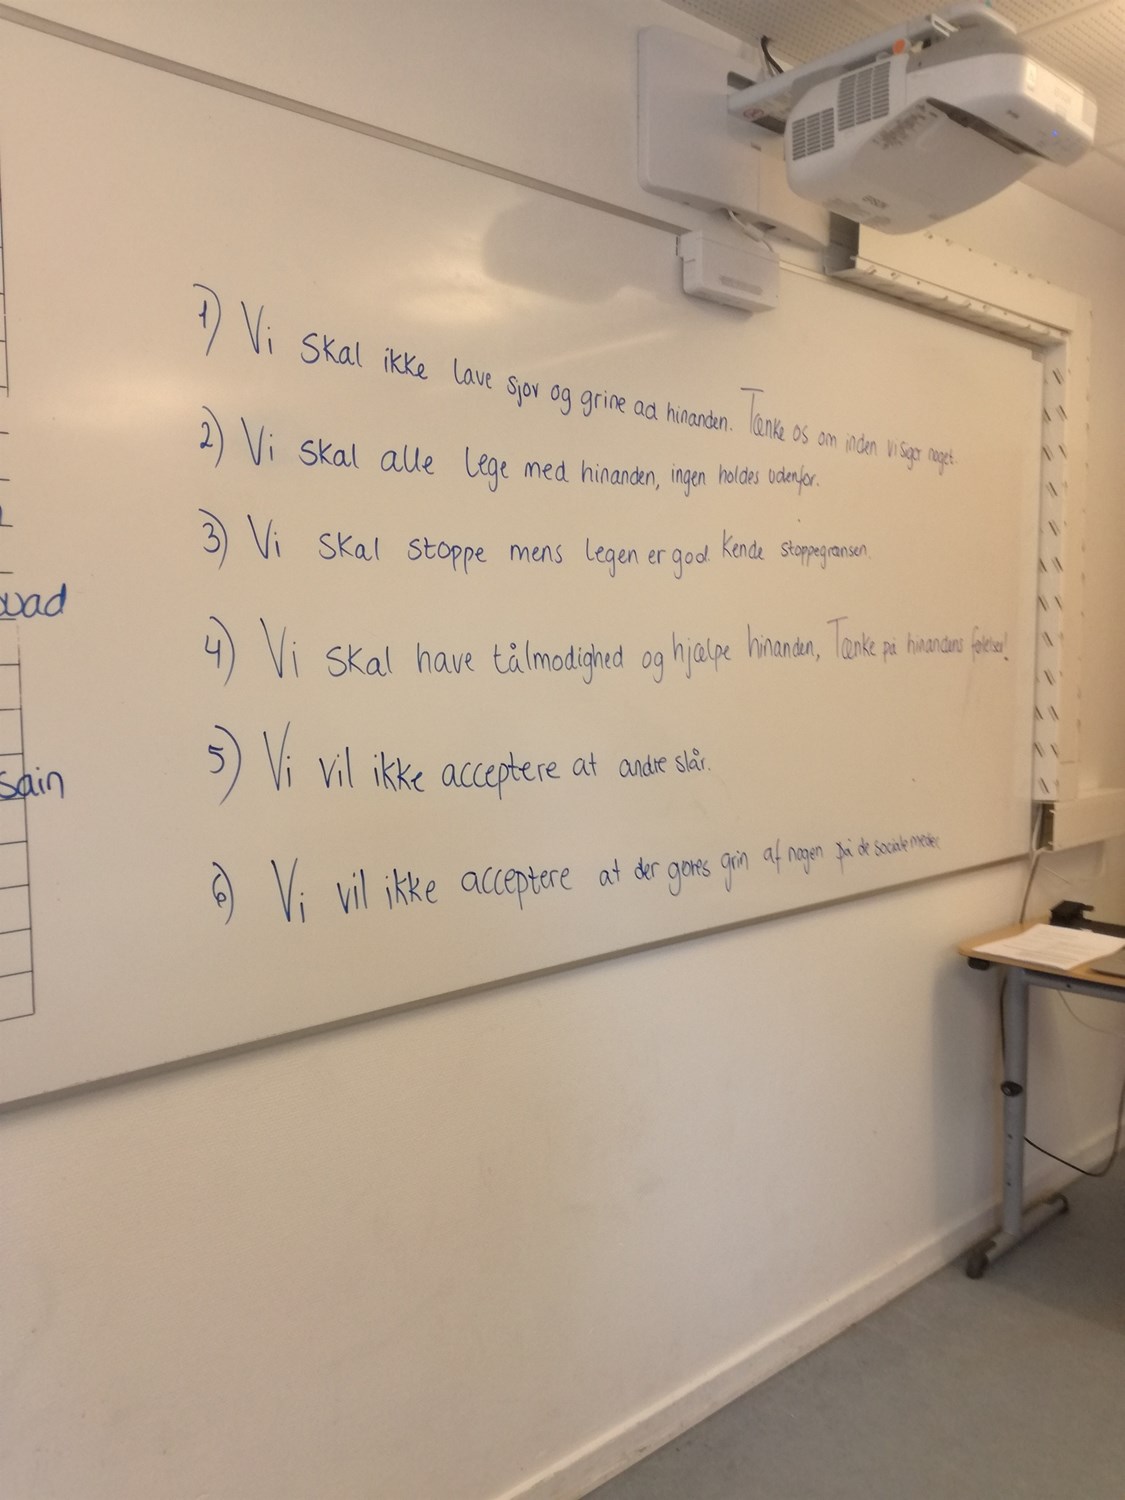 1) Vi skal ikke lave sjov og grine ad hinanden. Tænke os om inden vi siger noget.
2) Vi skal alle lege med hinanden, ingen holdes udenfor.
3) Vi skal stoppe mens legen er god. Kende stoppegrænsen.
4) Vi skal have tålmodighed og hjælpe hinanden, Tænke på hinandens følelser!
5) Vi vil ikke acceptere at andre slår.
6) Vi vil ikke acceptere at der gøres grin af nogen på de sociale medier
vad
sain
EPSON